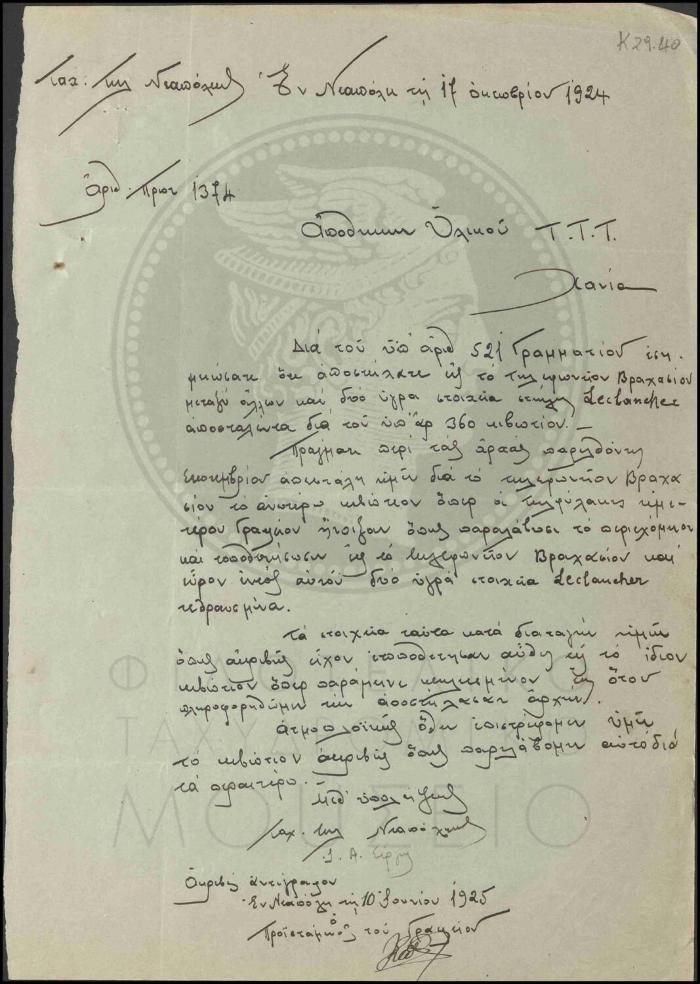 K 29.40
Ταχ. Τηλ. Νεαπόλεως Ἐν Νεαπόλει τῇ 17 ὀκτωβρίου 1924
Ἀριθ. Πρωτ 1374
Ἀποθήκην Ὑλικοῦ Τ.Τ.Τ.
Χανία
Διὰ τοῦ ὑπ' ἀριθ 521 Γραμματίου ἐση-
μειώσατε ὅτι ἀποστείλατε εἰς τὸ Τηλεφωνεῖον Βραχασίου
μεταξὺ ἄλλων καὶ δύο ὑγρὰ στοιχεῖα στήλης Leclancher
ἀποσταλέντα διὰ τοῦ ὑπ' ἀρ 360 κιβωτίου.—
Πράγματι περὶ τὰς ἀρχὰς παρελθόντος
Σεπτεμβρίου ἀπεστάλη ἡμῖν διὰ τὸ τηλεφωνεῖον Βραχα
σίου τὸ ἀνωτέρω κιβώτιον ὅπερ οἱ τηλεφύλακες ἡμε-
τέρου Γραφείου ἤνοιξαν ὅπως παραλάβωσι τὸ περιεχόμενον
καὶ τοποθετήσωσιν εἰς τὸ τηλεφωνεῖον Βραχασίου καὶ
εὗρον ἐντὸς αὐτοῦ δύο ὑγρὰ στοιχεῖα Leclancher
τεθραυσμένα.
Τὰ στοιχεῖα ταῦτα κατὰ διαταγὴν ἡμῶν
ὅπως ἀκριβῶς εἶχον ἐτοποθετήθησαν αὖθις εἰς τὸ ἴδιον
κιβώτιον ὅπερ παρέμεινε ἕως ὅτου
πληροφορηθῶμεν τὴν ἀποστείλασαν ἀρχήν.
Ἀτμοπλοϊκῶς ὅθεν ἐπιστρέφομεν ὑμῖν
τὸ κιβώτιον ἀκριβῶς ὅπως παρελάβομεν αὐτὸ διὰ
τὰ περαιτέρω.—
Μεθ' ὑπολήψεως
Ταχ. Τηλ. Νεαπόλεως
Ἀκριβὲς ἀντίγραφον
Ἐν Νεαπόλει τῇ 10 Ἰουνίου 1925
ὁ
Προϊστάμενος τοῦ Γραφείου
ΦΙΛΟΤΕΛΙΚΟ
ΤΑΧΥΔΡΟΜΙΚΟ
ΜΟΥΣΕΙΟ